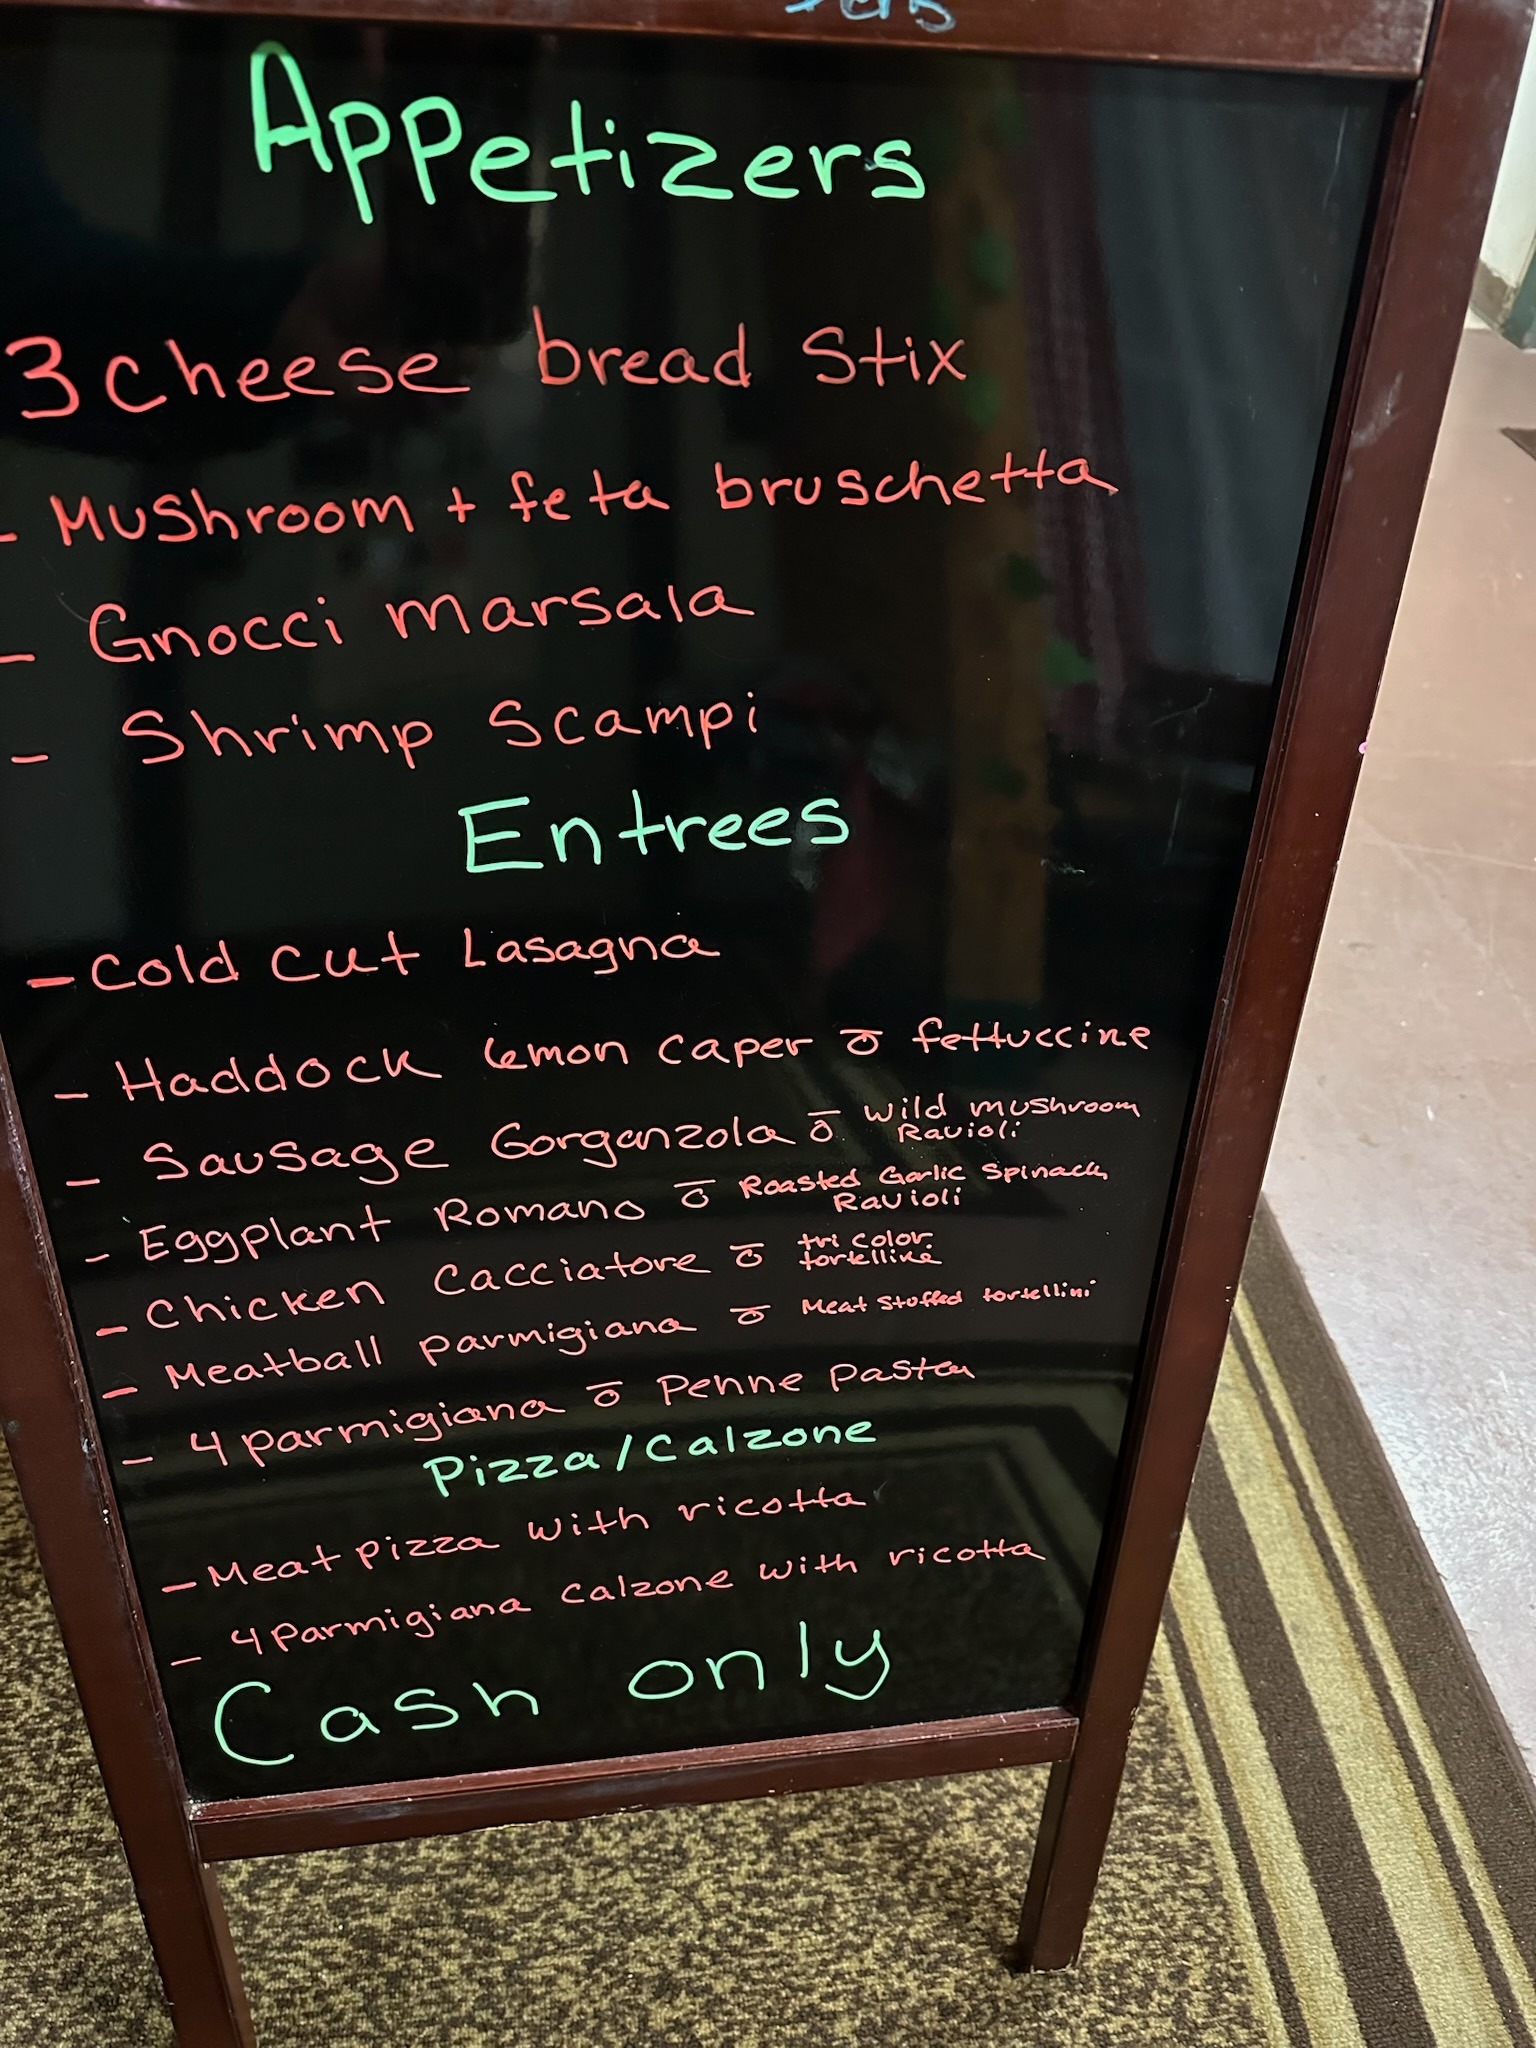 Appetizers
3 cheese bread Stix
- Mushroom + feta bruschetta
- Gnocci Marsala
- Shrimp Scampi
Entrees
- Cold cut Lasagna
- Haddock lemon caper ō fettuccine
- Sausage Gorganzola ō wild mushroom
Ravioli
- Eggplant Romano ō Roasted Garlic Spinach
Ravioli
- Chicken Cacciatore ō tri color
tortelline
- Meatball parmigiana ō Meat Stuffed tortellini
- 4 parmigiana ō Penne pasta
Pizza/Calzone
- Meat pizza with ricotta
- 4 Parmigiana Calzone with ricotta
Cash only